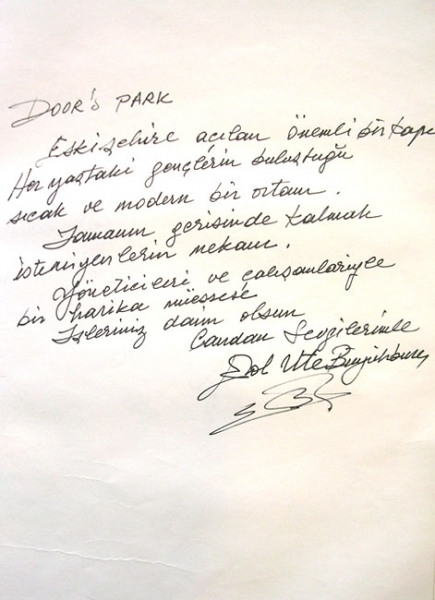 DOOR's PARK
Eskişehire açılan önemli bir kapı
Her yaştaki gençlerin buluştuğu
sıcak ve modern bir ortam.
Zamanın gerisinde kalmak
istemiyenlerin mekanı.
Yöneticileri ve çalışanlariyle
bir harika müessese
İşleriniz daim olsun
Candan Sevgilerimle
Erol Ute Büyükburç